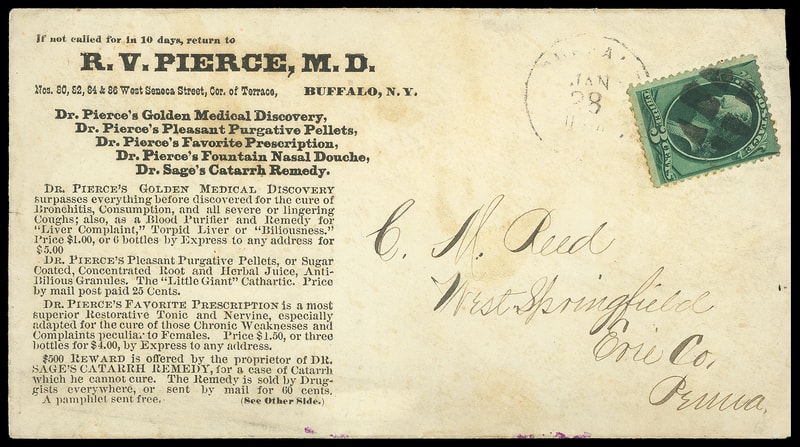 If not called for in 10 days, return to
R. V. PIERCE, M. D.
Nos. 80, 82, 84 & 86 West Seneca Street, Cor. of Terrace, BUFFALO, N. Y.
Dr. Pierce's Golden Medical Discovery,
Dr. Pierce's Pleasant Purgative Pellets,
Dr. Pierce's Favorite Prescription,
Dr. Pierce's Fountain Nasal Douche,
Dr. Sage's Catarrh Remedy.
DR. PIERCE'S GOLDEN MEDICAL DISCOVERY
surpasses everything before discovered for the cure of
Bronchitis, Consumption, and all severe or lingering
Coughs; also, as a Blood Purifier and Remedy for
"Liver Complaint," Torpid Liver or "Biliousness."
Price $1.00, or 6 bottles by Express to any address for
$5.00
DR. PIERCE'S Pleasant Purgative Pellets, or Sugar
Coated, Concentrated Root and Herbal Juice, Anti-
Bilious Granules. The "Little Giant" Cathartic. Price
by mail post paid 25 Cents.
DR. PIERCE'S FAVORITE PRESCRIPTION is a most
superior Restorative Tonic and Nervine, especially
adapted for the cure of those Chronic Weaknesses and
Complaints peculiar to Females. Price $1.50, or three
bottles for $4.00, by Express to any address.
$500 REWARD is offered by the proprietor of DR.
SAGE'S CATARRH REMEDY, for a case of Catarrh
which he cannot cure. The Remedy is sold by Drug-
gists everywhere, or sent by mail for 60 cents.
A pamphlet sent free. (See Other Side.)
JAN
28
THREE CENTS
C. M. Reed
West Springfield
Erie Co.
Penna.